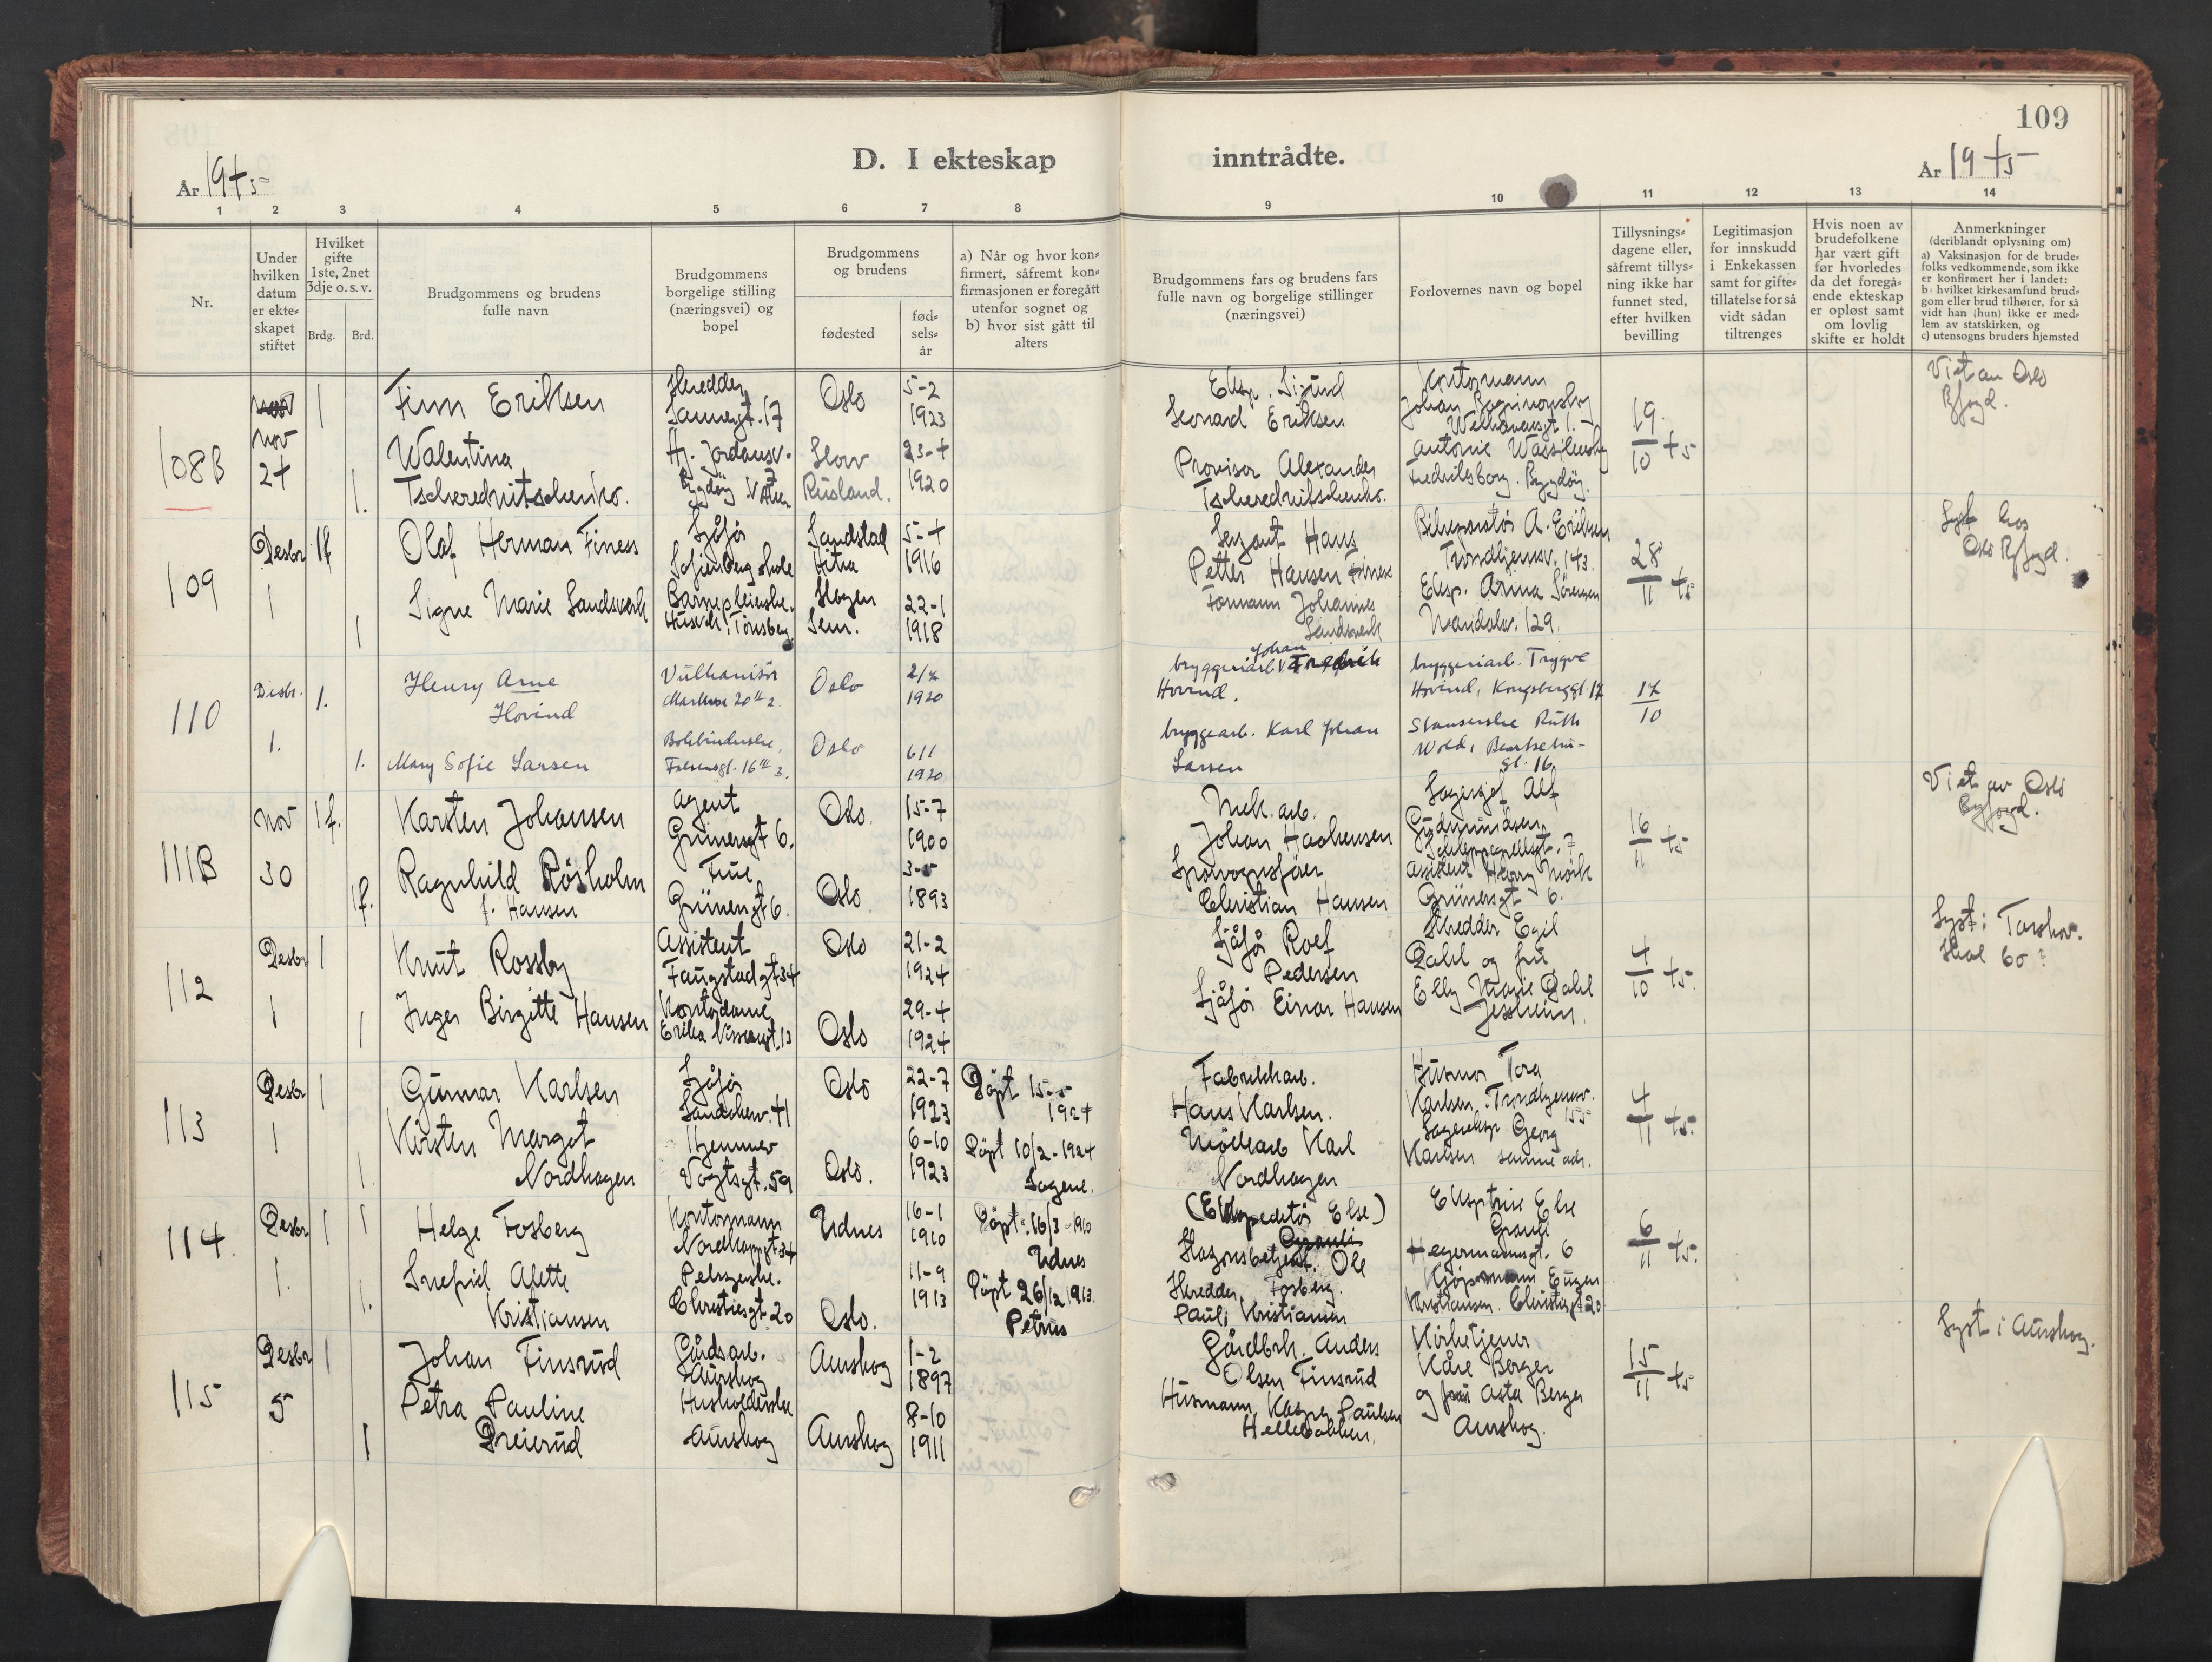 109
D. I ekteskap inntrådte.
År 1945
År 1945
1 2 3 4 5 6 7 8 9 10 11 12 13 14
Nr.
Under hvilken datum er ekte- skapet stiftet
Hvilket gifte 1ste, 2net 3dje o. s. v.
Brdg. Brd.
Brudgommens og brudens fulle navn
Brudgommens borgelige stilling (næringsvei) og bopel
Brudgommens og brudens
fødested
fød- sels- år
a) Når og hvor kon- firmert, såfremt kon- firmasjonen er foregått utenfor sognet og b) hvor sist gått til alters
Brudgommens fars og brudens fars fulle navn og borgelige stillinger (næringsvei)
Forlovernes navn og bopel
Tillysnings- dagene eller, såfremt tillys- ning ikke har funnet sted, efter hvilken bevilling
Legitimasjon for innskudd i Enkekassen samt for gifte- tillatelse for så vidt sådan tiltrenges
Hvis noen av brudefolkene har vært gift før hvorledes da det foregå- ende ekteskap er opløst samt om lovlig skifte er holdt
Anmerkninger (deriblandt oplysning om) a) Vaksinasjon for de brude- folks vedkommende, som ikke er konfirmert her i landet: b) hvilket kirkesamfund brud- gom eller brud tilhører, for så vidt han (hun) ikke er med- lem av statskirken, og c) utensogns bruders hjemsted
108B
nov
24
1
1.
Finn Eriksen
Skredder
Sannergt. 17
Oslo
5-2
1923
Walentina
Tscherednitschenko.
Hj. Jordansv. 7
Bygdøy
Russland.
23-4
1920
Eksp. Sigurd
Leonard Eriksen
Provisor Alexander
Tscherednitschenko.
Kontormann
Johan
Welhavensgt 1.
Antonie
Fredriksborg. Bygdøy.
19/10 45
Viet av Oslo
Byfogd.
109
Desbr
1
Olaf Herman Finess
Sjåfør
Sofienberg skole
Sandstad
Hitra
5-4
1916
Signe Marie Sandsverk
Barnepleierske.
Tönsberg
Slagen
Sem.
22-1
1918
Sersjant Hans
Petter Hansen Finess
Formann Johannes
Sandsverk
A. Eriksen
Trondhjemsv. 143.
Eksp. Anna Sörensen
Maridalsv. 129.
28/11 45
Lyst hos
Oslo Byfogd.
110
Desbr.
1.
1.
1.
Henry Arne
Hovind
Vulkanisör
Oslo
1920
Mary Sofie Larsen
Bokbinderske,
Oslo
6/1
1920
bryggeriarb. Johan Fredrik
Hovind.
bryggearb. Karl Johan
Larsen
bryggeriarb. Trygve
Hovind, Kongsberggt. 17
Stanserske Ruth
Wold, Bentsebru-
gt. 16.
17/10
111B
nov
30
1 f.
1 f.
Karsten Johansen
Agent
Grünersgt 6.
Oslo.
15-7
1900
Ragnhild Rösholm
f. Hansen
Frue
Grünersgt 6.
Oslo.
3-5
1893
Mek. arb.
Johan Haakensen
Sporvognsfører
Christian Hansen
Lagersjef Alf
Gudmundsen,
Assistent Henry Mörk
Grünersgt 6.
16/11 45
Viet av Oslo
Byfogd.
112
Desbr
1
1
1
Knut Rossby
Assistent
Faugstadgt 34
Oslo
21-2
1924
Inger Birgitte Hansen
Kontordame
Erika Nissensgt. 13
Oslo
29-4
1924
Sjåfør Rolf
Pedersen
Sjåfør Einar Hansen
Skredder Egil
Dahl og fru
Elly Marie Dahl
Jessheim.
4/10 45.
Lyst i Torshov.
Skal bo?
113
Desbr
1
1
1.
Gunnar Karlsen
Sjåfør
Sandakerv. 41
Oslo
22-7
1923
Döpt 15-5
1924
Kirsten Margot
Nordhagen
Hjemmev
Vogtsgt. 59
Oslo.
6-10
1923
Döpt 10/2-1924
Sagene.
Fabrikkarb.
Hans Karlsen.
Karl
Nordhagen
Husmor Tora
Karlsen, Trondhjemsv. 155
Lagereksp. Georg
Karlsen samme adr.
4/11 45.
114.
Desbr
1.
1
1.
Helge Fosberg
Kontormann
Nordkappgt 34
Udnes
16-1
1910
Döpt. 16/3-1910
Udnes
Snefrid Alette
Kristiansen
Pelssyerske.
Christiesgt 20
Oslo.
11-9
1913
Döpt 26/12 1913.
Petrus
(Ekspeditör Else)
Ole
Fosberg.
Skredder
Paul Kristiansen
Ekspeditrise Else
Hegermannsgt. 6
Kjöpmann Eugen
Kristiansen. Christiesgt 20
6/11 45.
115
Desbr
5
1
1
Johan Finsrud
Gårdsarb.
Aurskog
Aurskog
1-2
1897
Petra Pauline
Dreierud
Husholderske
Aurskog
Aurskog
8-10
1911
Gårdbrk. Anders
Olsen Finsrud
Husmann, Kasper Paulsen
Hellebakken.
Kirketjener
Kåre Berger
og fru Asta Berger
Aurskog.
15/11 45
Lyst i Aurskog.